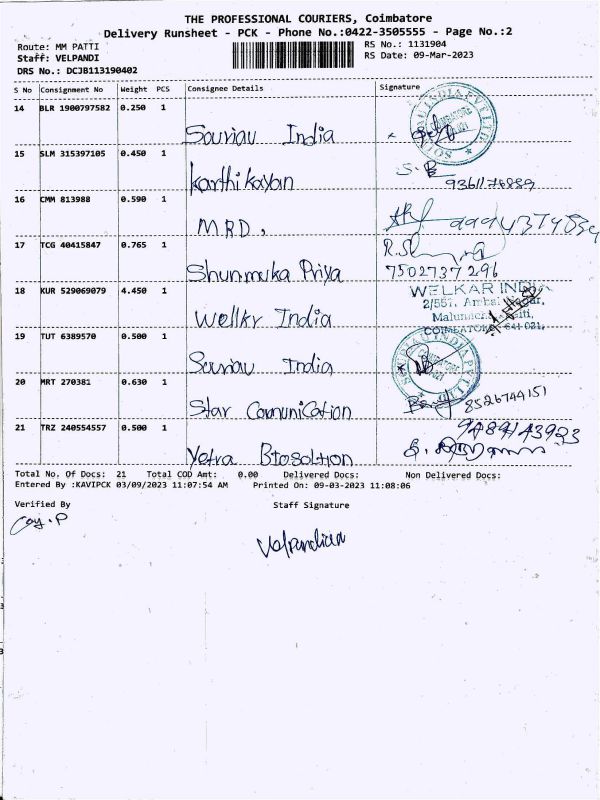 THE PROFESSIONAL COURIERS, Coimbatore
Delivery Runsheet - PCK - Phone No.:0422-3505555 - Page No.:2
Route: MM PATTI
RS No.: 1131904
Staff: VELPANDI
RS Date: 09-Mar-2023
DRS No.: DCJB113190402
S No Consignment No Weight PCS Consignee Details Signature
14 BLR 1900797582 0.250 1
Souriau India
15 SLM 315397105 0.450 1
Karthikayan
S.
9361176889
16 CMM 813988 0.590 1
M R D,
17 TCG 40415847 0.765 1
Shunmuka Priya
7502737296
18 KUR 529069079 4.450 1
Wellkr India
WELKAR INDIA
2/557, Ambal Nagar,
COIMBATORE - 641 021.
19 TUT 6389570 0.500 1
Souriau India
20 MRT 270381 0.630 1
Star Comunication
8526744151
21 TRZ 240554557 0.500 1
9489143933
Yetra Btosoltion
Total No. Of Docs: 21 Total COD Amt: 0.00 Delivered Docs: Non Delivered Docs:
Entered By :KAVIPCK 03/09/2023 11:07:54 AM Printed On: 09-03-2023 11:08:06
Verified By Staff Signature
Velpandian